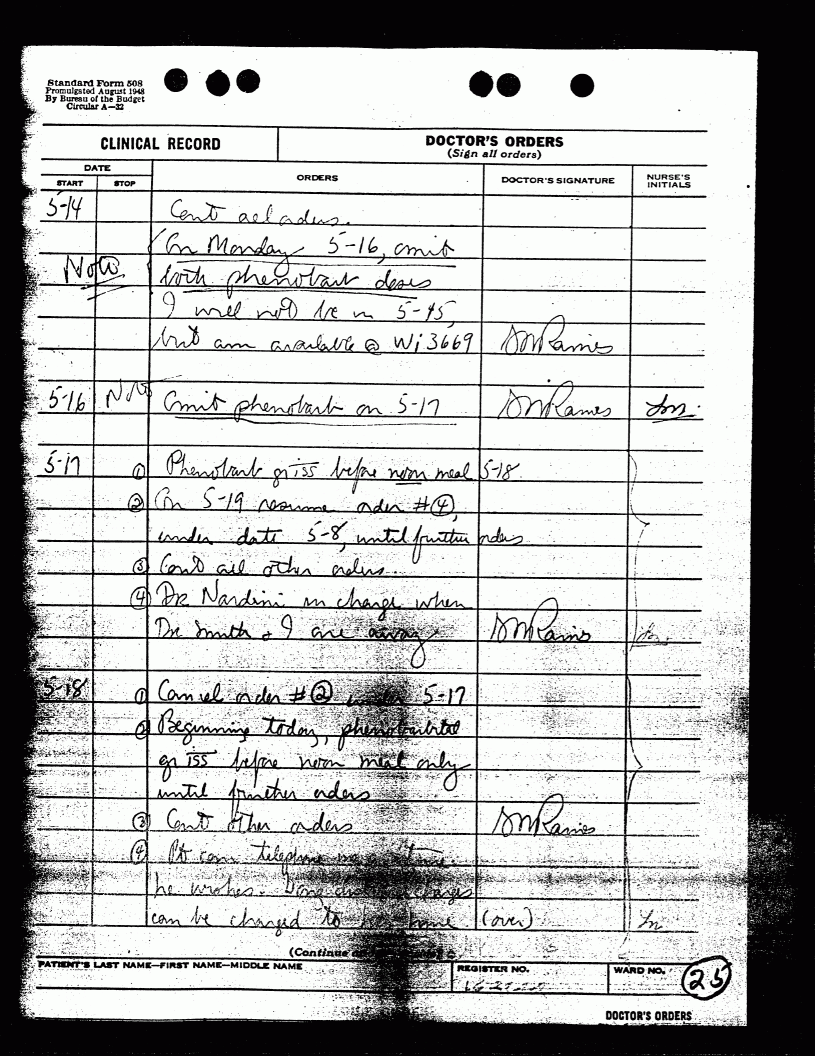 Standard Form 508
Promulgated August 1948
By Bureau of the Budget
Circular A—32
CLINICAL RECORD
DOCTOR'S ORDERS
(Sign all orders)
DATE
START STOP ORDERS DOCTOR'S SIGNATURE NURSE'S INITIALS
5-14 Cont all orders.
On Monday 5-16, omit
Note both phenobarb doses
I will not be in 5-15,
but am available @ Wi 3669
5-16 Note Omit phenobarb on 5-17
5-17 ① Phenobarb gr iss before noon meal 5-18
② On 5-19 resume order #④,
under date 5-8, until further orders
③ Cont all other orders.
④ Dr Nardini in charge when
Dr Smith & I are away
5-18 ① Cancel order #② under 5-17
② Beginning today, phenobarbital
gr iss before noon meal only
until further orders
③ Cont other orders
④ Pt can telephone
he wishes. Long distance charges
can be charged to his home (over)
(Continue
PATIENT'S LAST NAME—FIRST NAME—MIDDLE NAME
REGISTER NO.
WARD NO.
25
DOCTOR'S ORDERS